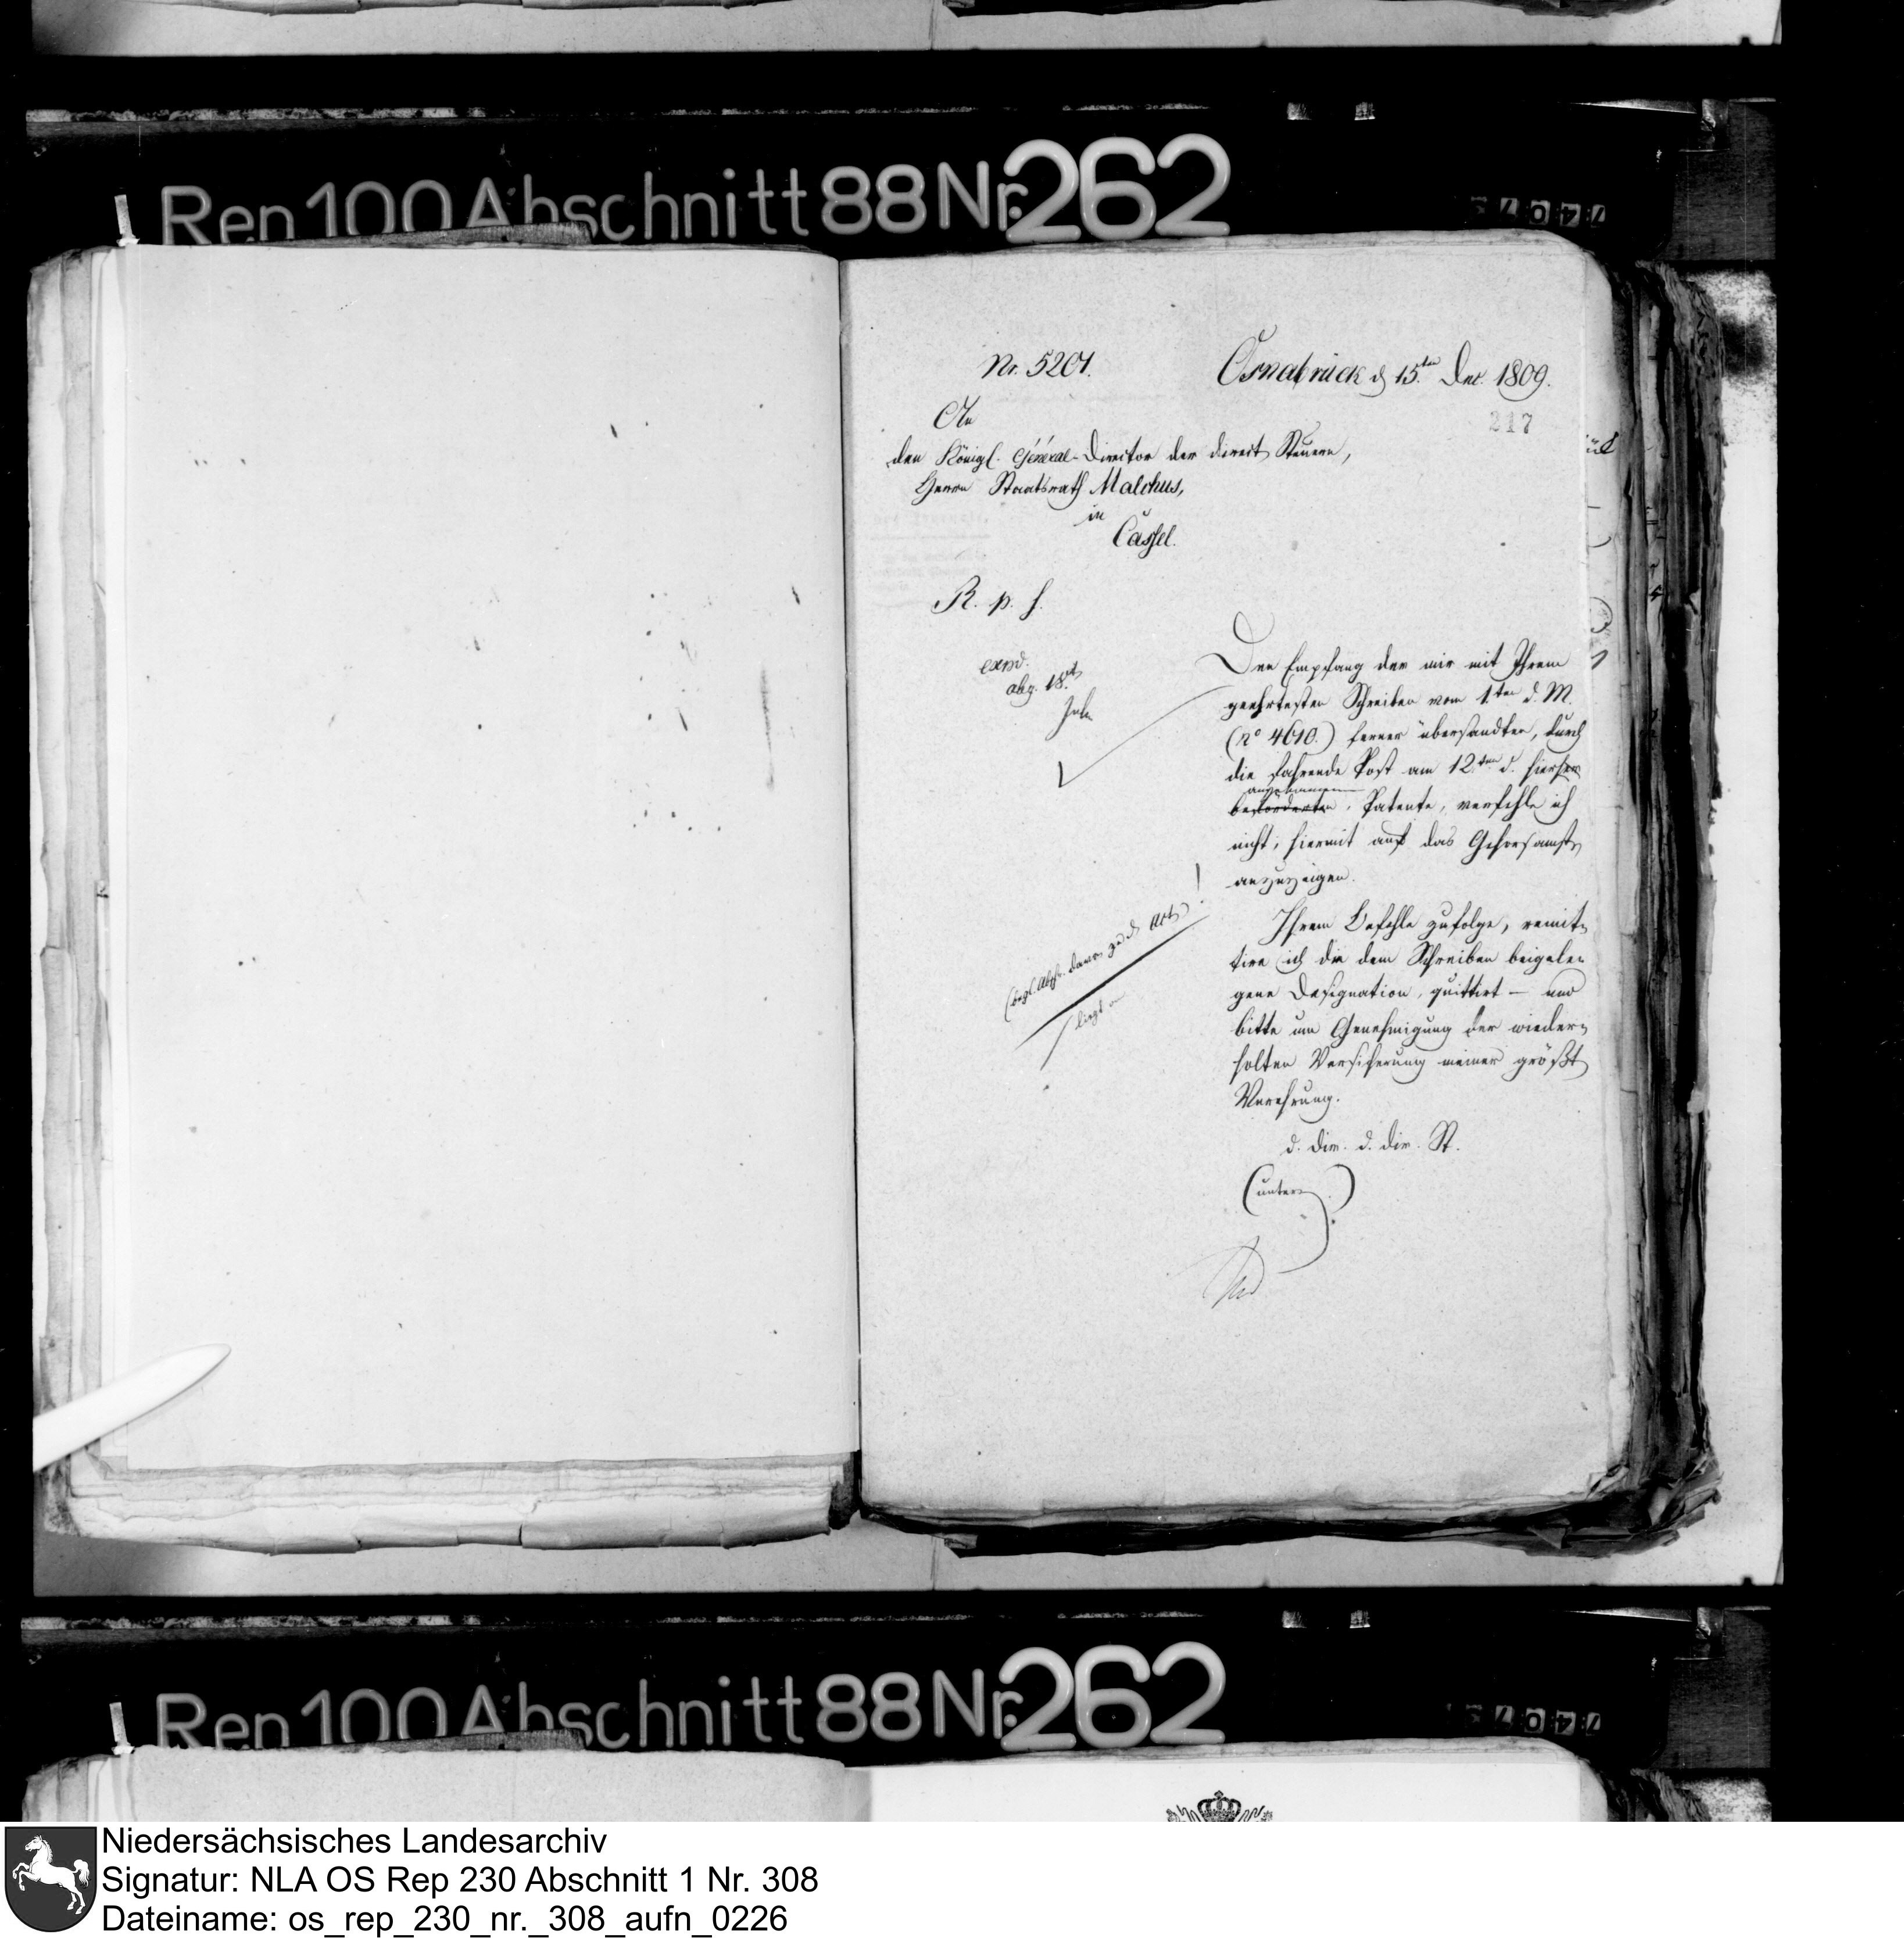 Rep 100 Abschnitt 88 Nr. 262
Nr. 5201. Osnabrück d 15.ten Dec. 1809.
217
An
den Königl. Général-Director der direct Steuern,
Herrn Staatsrath Malchus,
in
Cassel.
R. p. s.
abg. 18.
Den Empfang der mir mit Ihrem
geehrtesten Schreiben vom 1.ten d. M.
(no 4610.) ferner übersandten, durch
die fahrende Post am 12.ten d. hierher
angekommenen
beförderten, Patente, verfehle ich
nicht, hiermit auf das Gehorsamste
anzuzeigen.
Ihrem Befehle zufolge, remit-
tire ich die dem Schreiben beigele-
gene Designation, quittirt — und
bitte um Genehmigung der wieder-
holten Versicherung meiner größt
Verehrung.
d. Dir. d. dir. St.
(unterz.)
Rep 100 Abschnitt 88 Nr. 262
Niedersächsisches Landesarchiv
Signatur: NLA OS Rep 230 Abschnitt 1 Nr. 308
Dateiname: os_rep_230_nr._308_aufn_0226